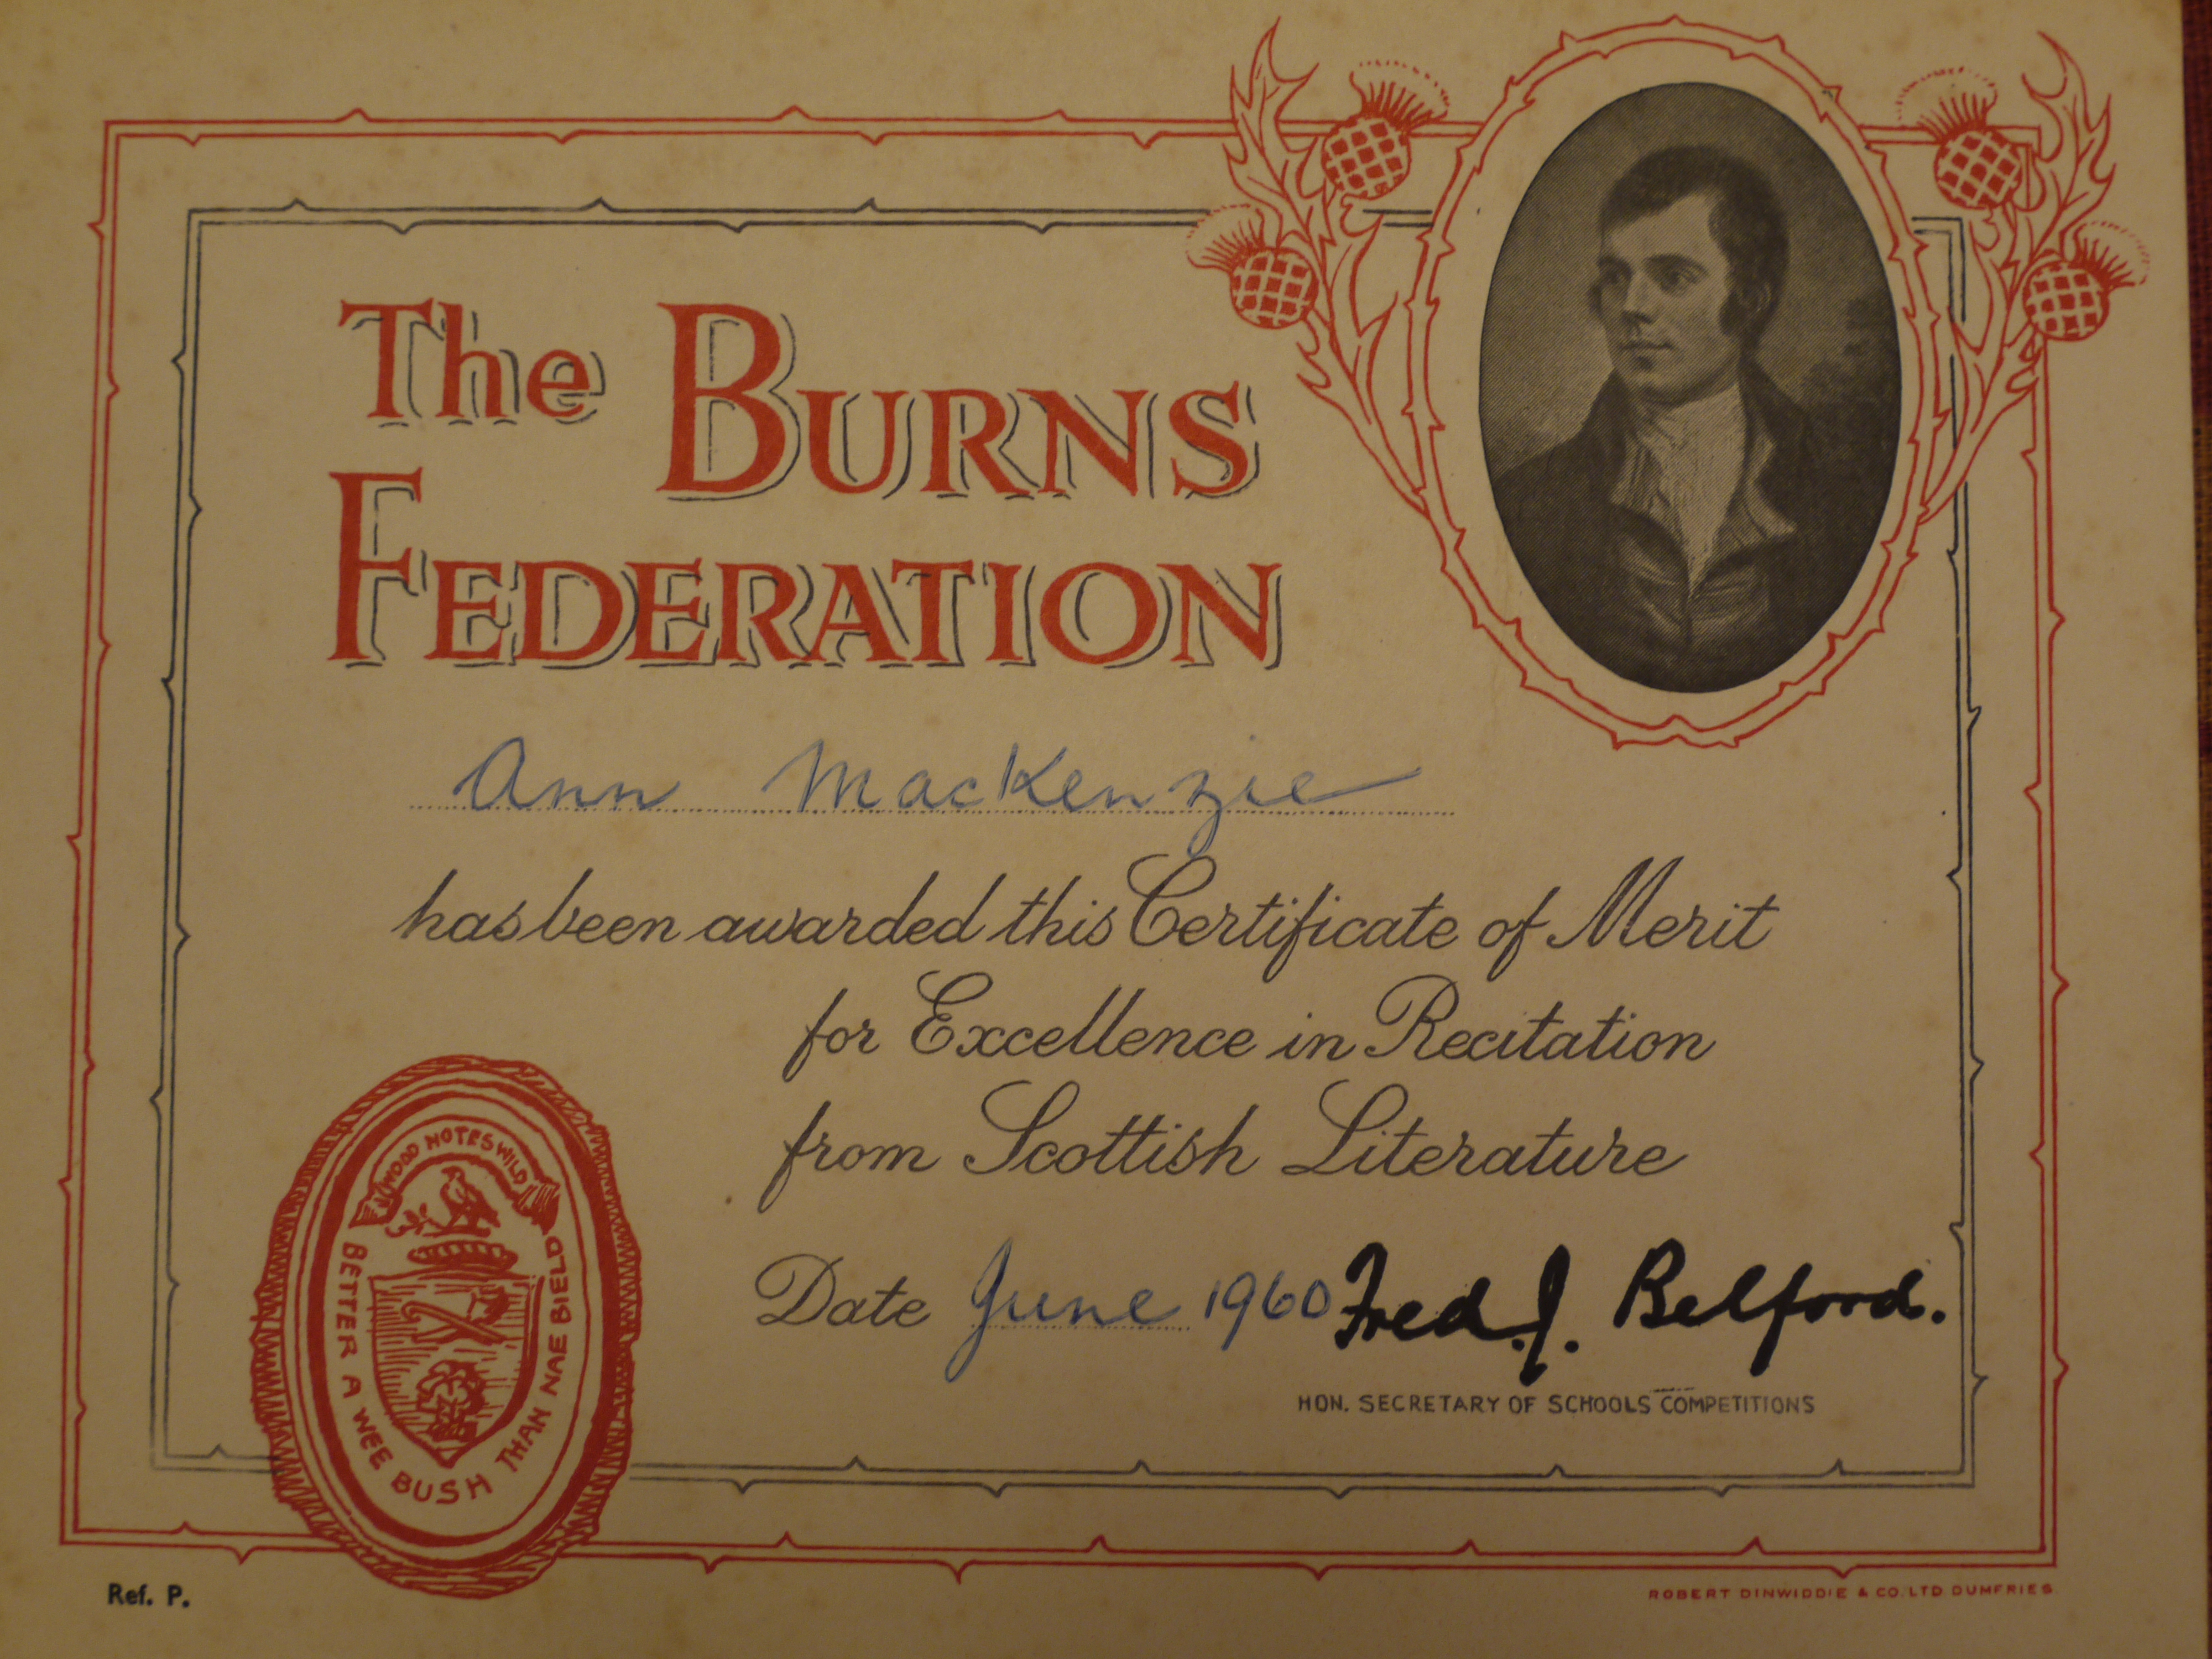 The BURNS
FEDERATION
Ann MacKenzie
has been awarded this Certificate of Merit
for Excellence in Recitation
from Scottish Literature
Date June 1960 Fred. J. Belford.
HON. SECRETARY OF SCHOOLS COMPETITIONS
WOOD NOTES WILD
BETTER A WEE BUSH THAN NAE BIELD
Ref. P.
ROBERT DINWIDDIE & CO. LTD DUMFRIES